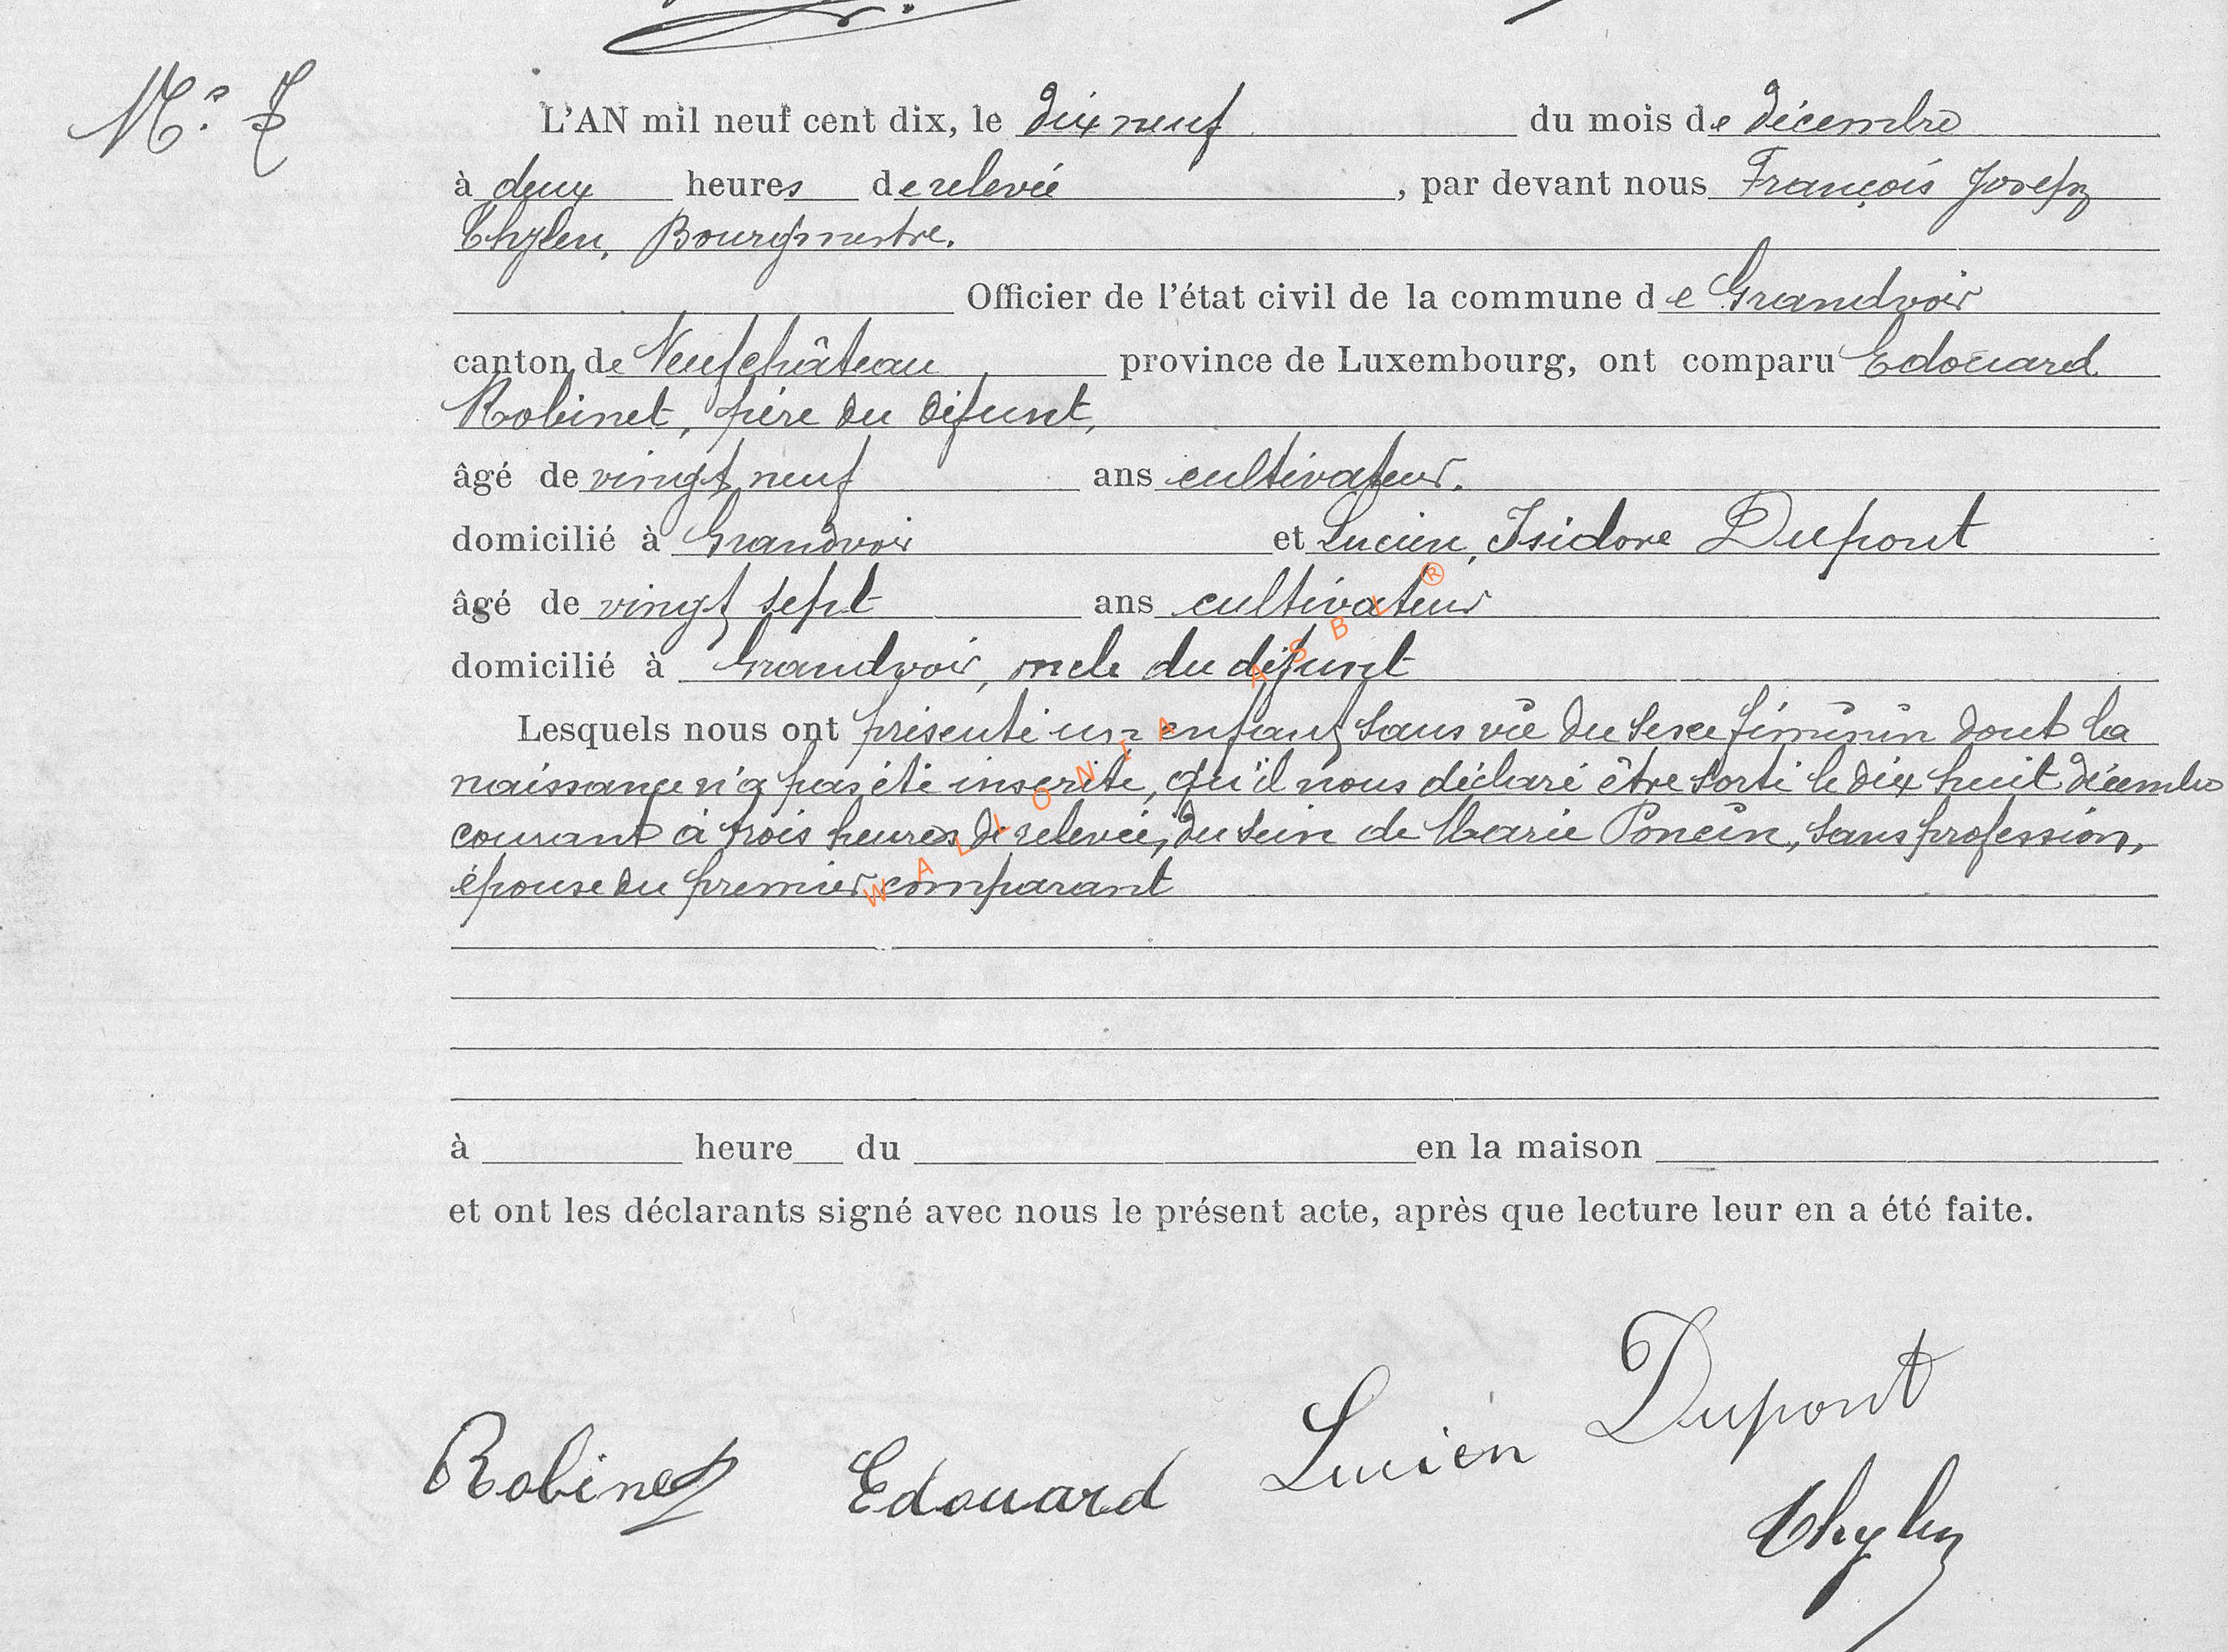 N.° 7
L'AN mil neuf cent dix, le dix neuf du mois de décembre
à deux heures de relevée, par devant nous François Joseph
Thylen, Bourgmestre.
Officier de l'état civil de la commune de Grandvoir
canton de Neufchâteau province de Luxembourg, ont comparu Edouard
Robinet, père du défunt,
âgé de vingt neuf ans cultivateur.
domicilié à Grandvoir et Lucien, Isidore Dupont
âgé de vingt sept ans cultivateur
domicilié à Grandvoir, oncle du défunt
Lesquels nous ont présenté un enfant sans vie du sexe féminin dont la
naissance n'a pas été inscrite, qu'il nous déclaré être sorti le dix huit décembre
courant à trois heures de relevée, du sein de Marie Poncin, sans profession,
épouse du premier comparant
WALLONIA ASBL ®
à heure du en la maison
et ont les déclarants signé avec nous le présent acte, après que lecture leur en a été faite.
Robinet Edouard Lucien Dupont
Thylen